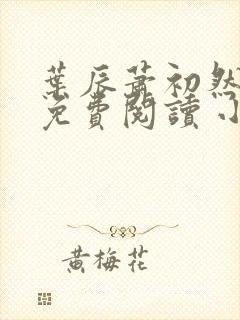 葉辰蕭初然
免費閱讀
黃梅花